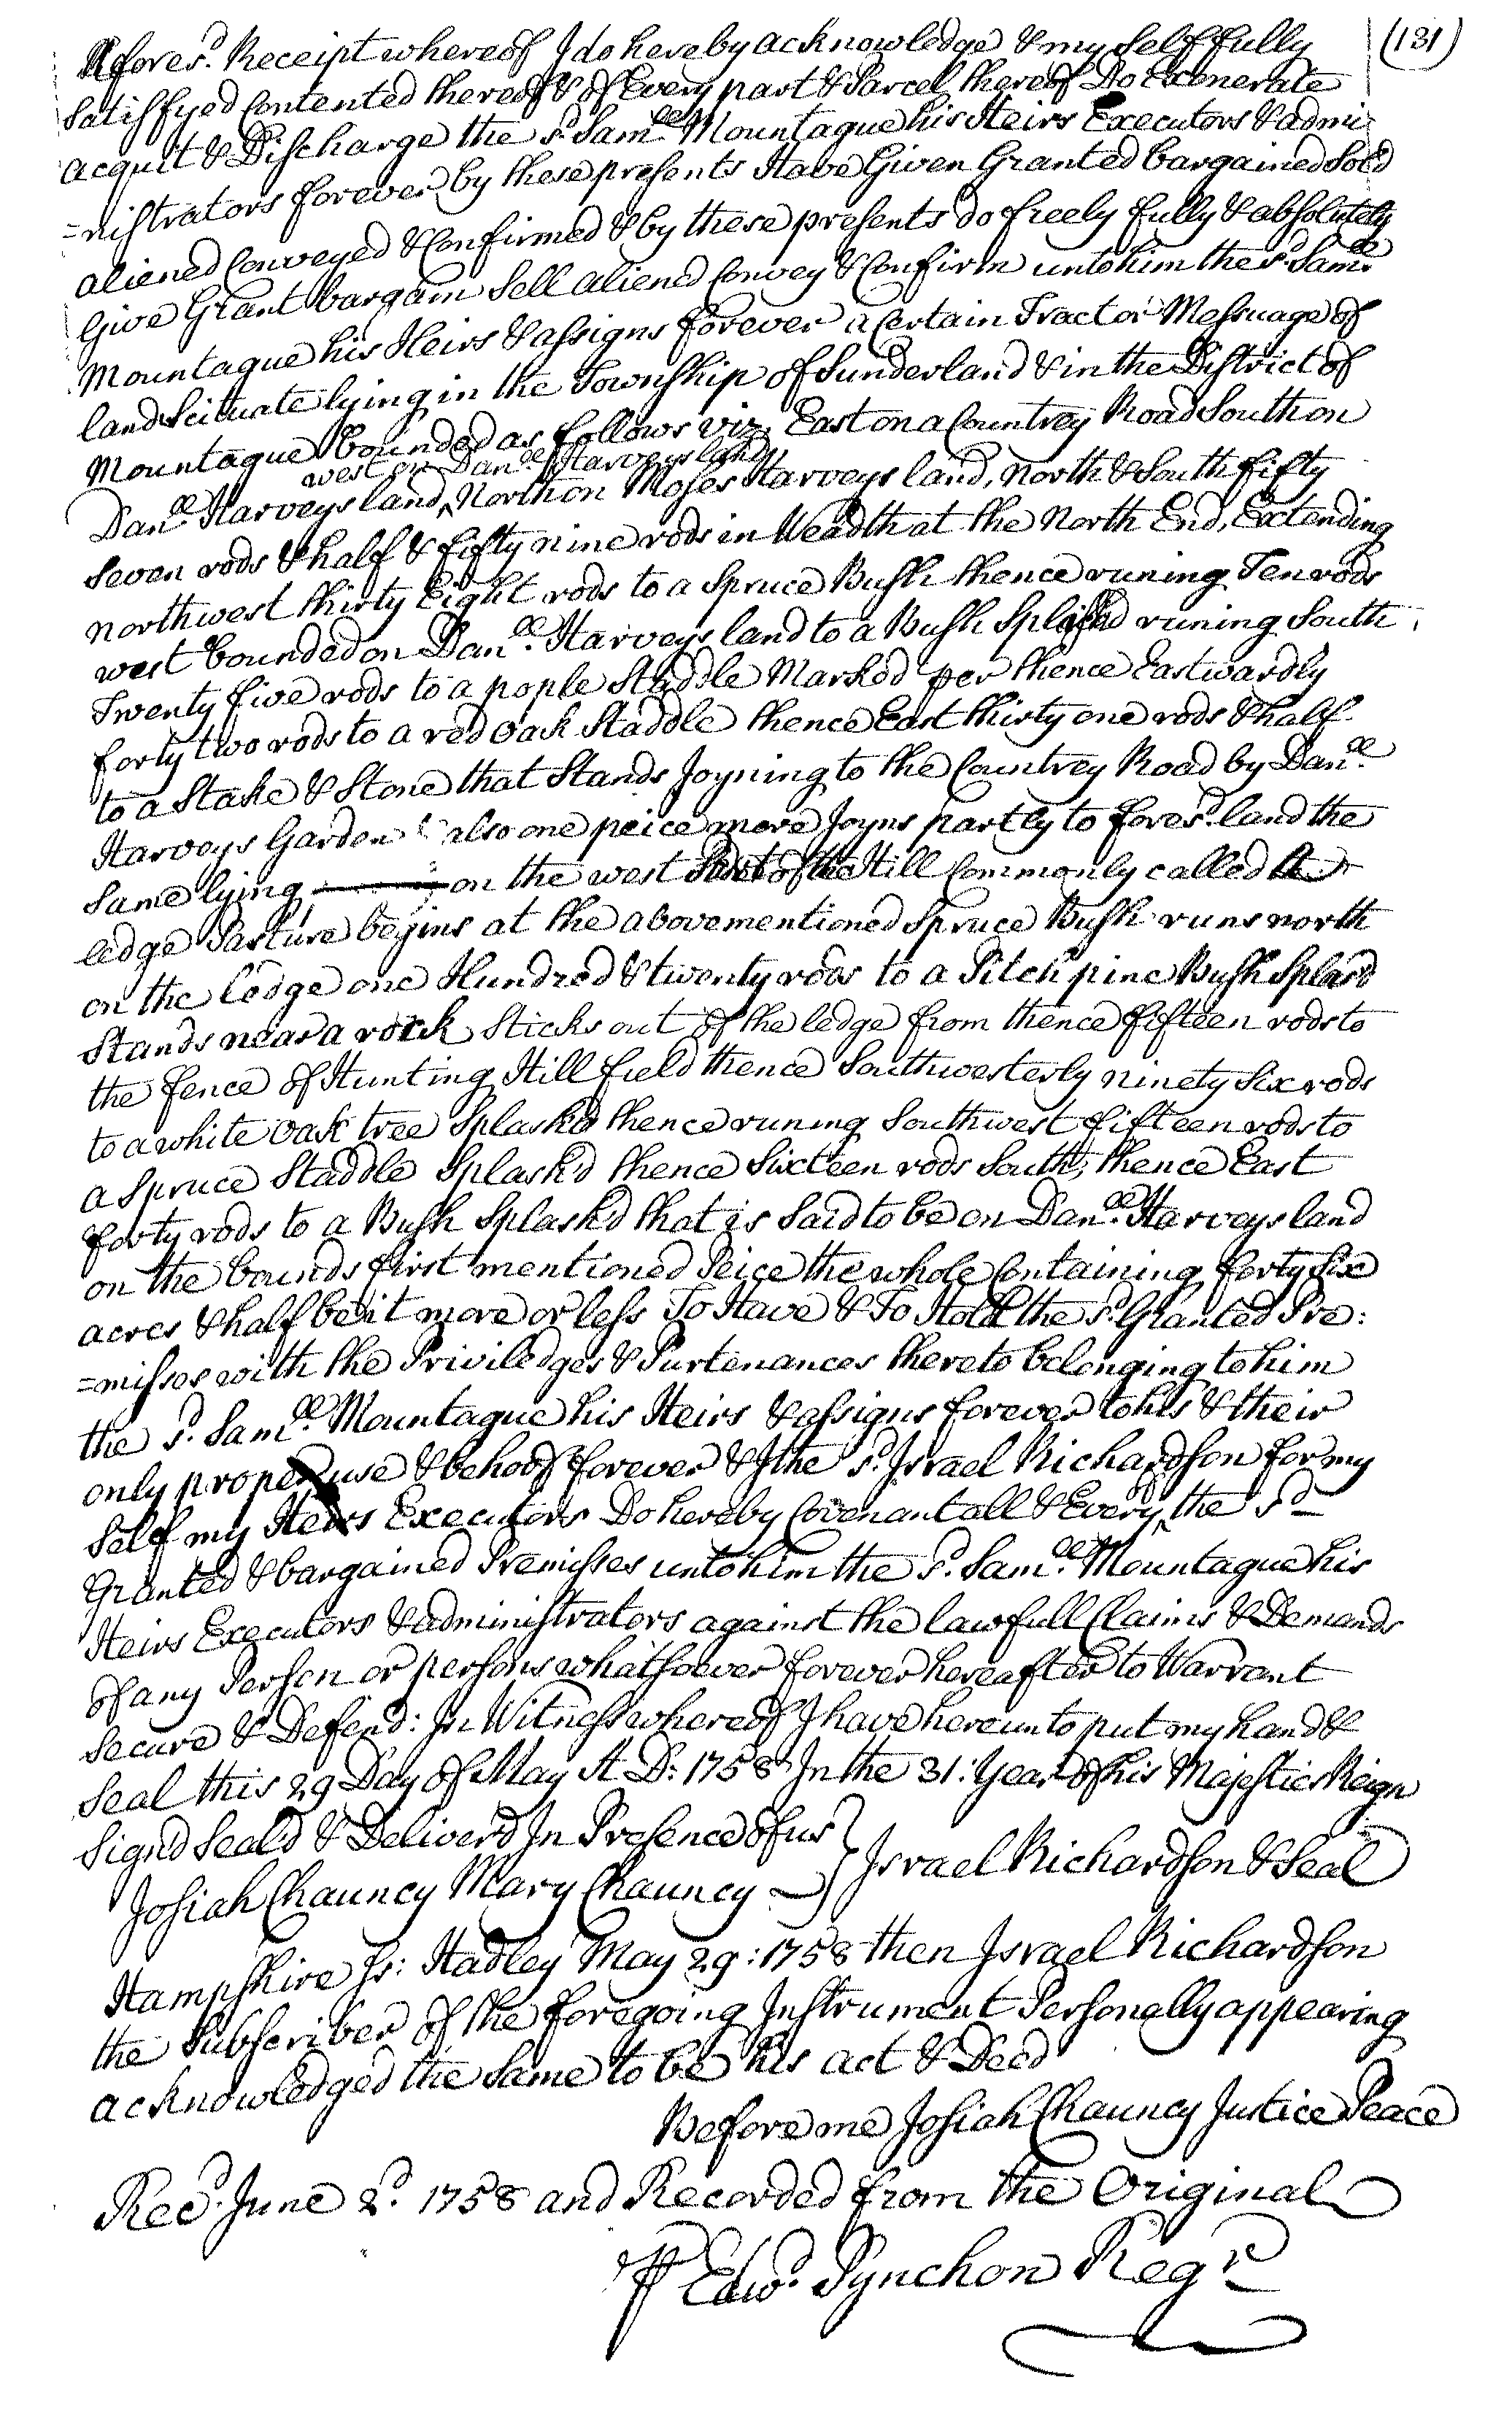 (131)
Afores.d Receipt whereof I do hereby acknowledge & my Self fully
Satisfyed Contented thereof & of Every part & Parcel thereof Do Exonerate
acquit & Discharge the s.d Sam.ll Mountague his Heirs Executors & admi
=nistrators forever by these presents Have Given Granted bargained Sold
aliened Conveyed & Confirmed & by these presents do freely fully & absolutely
Give Grant bargain Sell aliened Convey & Confirm unto him the s.d Sam.ll
Mountague his Heirs & assigns forever a Certain Tract or Messuage of
land Scituate lying in the Township of Sunderland & in the District of
Mountague bounded as follows viz. East on a Countrey Road South on
west on Dan.ll Harveys land
Dan.ll Harveys land, ^ North on Moses Harveys land, North & South fifty
Seven rods & half & fifty nine rods in Weadth at the North End, Extending
northwest thirty Eight rods to a Spruce Bush thence runing Ten rods
west bounded on Dan.ll Harveys land to a Bush Splashd runing South
Twenty five rods to a pople Staddle Markd per thence Eastwardly
forty two rods to a red Oak Staddle thence East thirty one rods & half
to a Stake & Stone that Stands Joyning to the Countrey Road by Dan.ll
Harveys Garden & also one peice more Joyns partly to fores.d land the
Same lying on the west Side of the Hill Commonly called the
ledge Pasture begins at the abovementioned Spruce Bush runs north
on the ledge one Hundred & twenty rods to a Pitch pine Bush Splasd
Stands near a rock Sticks out of the ledge from thence fifteen rods to
the fence of Hunting Hill field thence Southwesterly ninety Six rods
to a white Oak tree Splashd thence runing Southwest fifteen rods to
a Spruce Staddle Splashd thence Sixteen rods South, thence East
forty rods to a Bush Splashd that is Said to be on Dan.ll Harveys land
on the bounds first mentioned Peice the whole Containing forty Six
acres & half be it more or less To Have & To Hold the s.d Granted Pre:
=misses with the Priviledges & Purtenances thereto belonging to him
the s.d Sam.ll Mountague his Heirs & assigns forever to his & their
only proper use & behoof forever & I the s.d Israel Richardson for my
Self my Heirs Executors Do hereby Covenant all & Every of the s.d
Granted & bargained Premisses unto him the s.d Sam.ll Mountague his
Heirs Executors & administrators against the lawfull Claims & Demands
of any Person or persons whatsoever forever hereafter to Warrant
Secure & Defend: In Witness whereof I have hereunto put my hand &
Seal this 29 Day of May A D: 1758 In the 31: Year of his Majesties Reign
Signd Seald & Deliverd In Presence of us } Israel Richardson & Seal
Josiah Chauncy Mary Chauncy
Hampshire Ss: Hadley May 29: 1758 then Israel Richardson
the Subscriber of the foregoing Instrument Personally appearing
acknowledged the Same to be his act & Deed
Before me Josiah Chauncy Justice Peace
Rec.d June 2.d 1758 and Recorded from the Original
P Edw.d Pynchon Reg.r